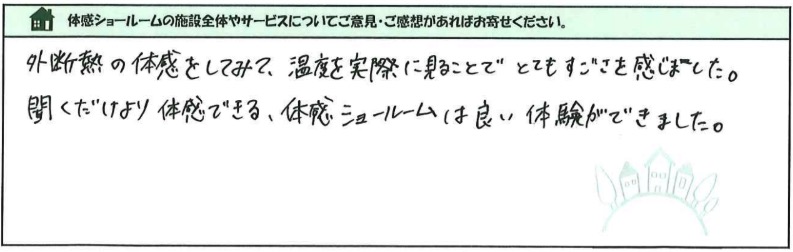 体感ショールームの施設全体やサービスについてご意見・ご感想があればお寄せください。
外断熱の体感をしてみて、温度を実際に見ることでとてもすごさを感じました。
聞くだけより体感できる、体感ショールームは良い体験ができました。